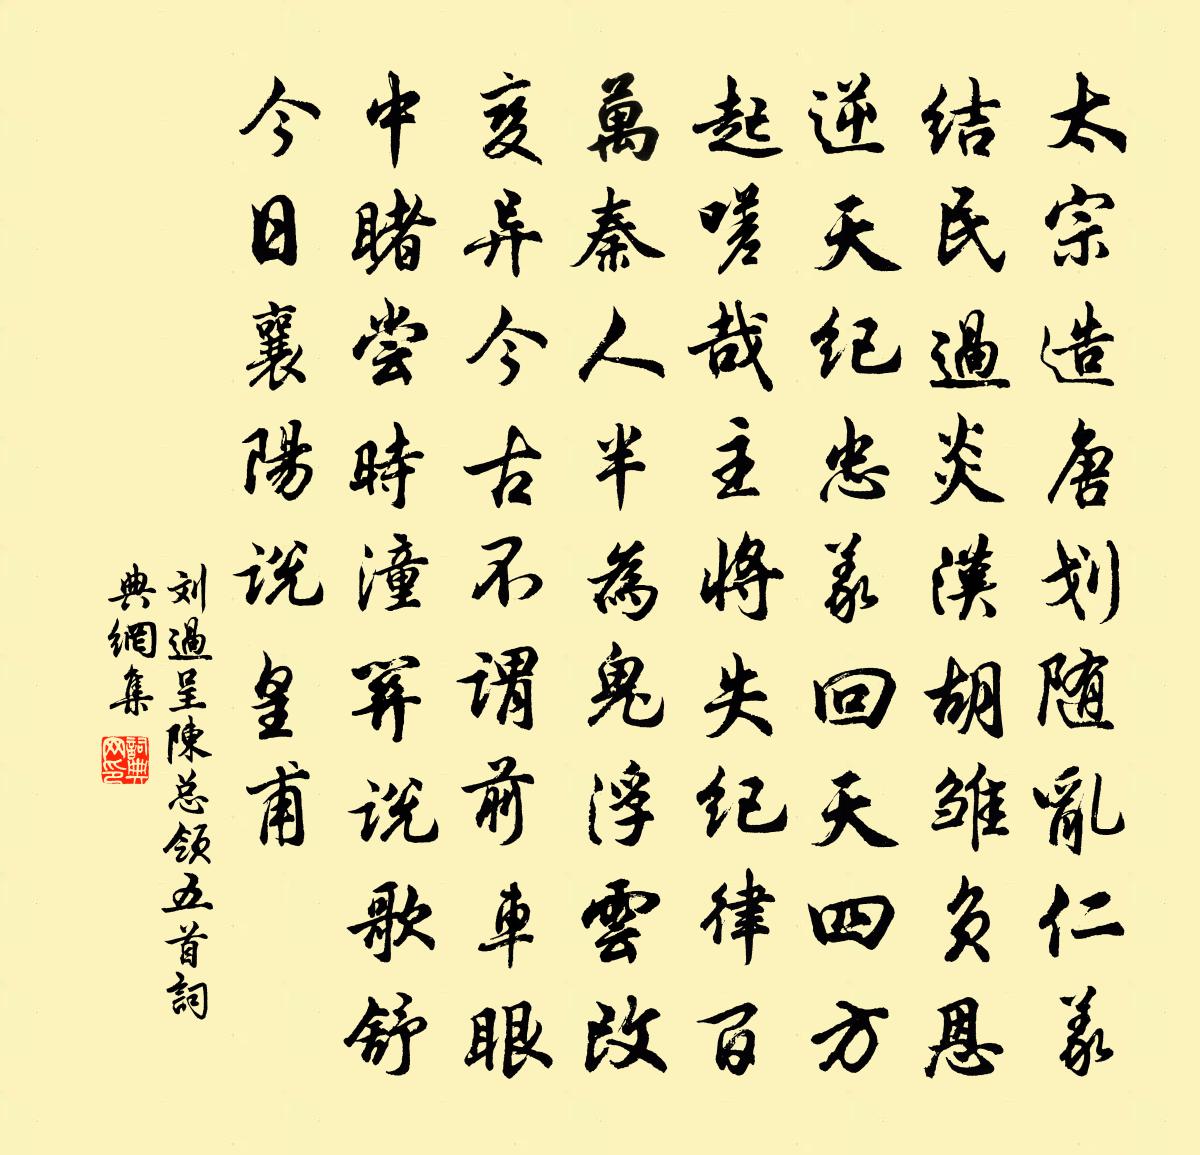 太宗造唐划随亂仁義
结民過炎漢胡雏负恩
逆天纪忠義回天四方
起嗟哉主將失纪律百
萬秦人半為鬼浮雲改
变异今古不谓前車眼
中睹尝時潼関说歌舒
今日襄陽说皇甫
刘過呈陳总领五首詞
典網集
詞典
网印